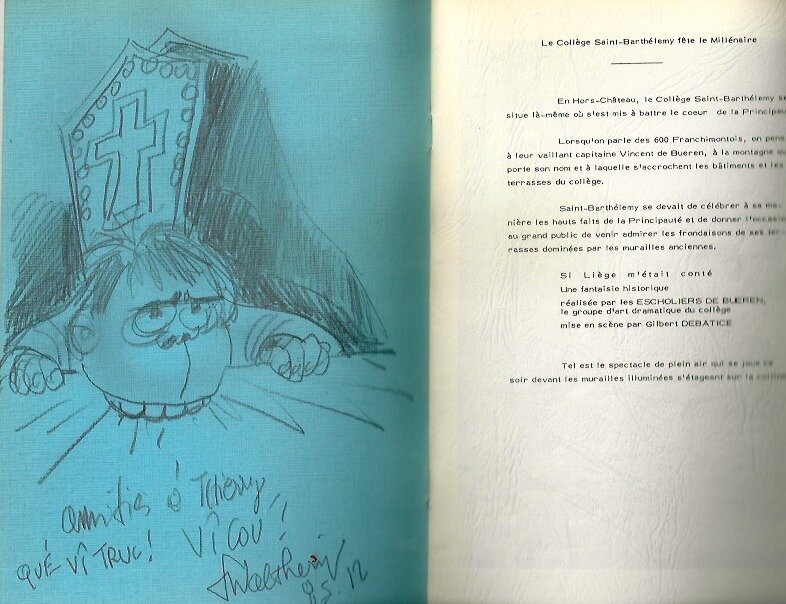 Amitiés à Thierry
QUÉ VÎ TRUC! VÎ COU!
Le Collège Saint-Barthélemy fête le Millénaire
En Hors-Château, le Collège Saint-Barthélemy se
situe là-même où s'est mis à battre le coeur de la
Lorsqu'on parle des 600 Franchimontois, on
à leur vaillant capitaine Vincent de Bueren, à la montagne
porte son nom et à laquelle s'accrochent les bâtiments et les
terrasses du collège.
Saint-Barthélemy se devait de célébrer à sa ma-
nière les hauts faits de la Principauté et de donner l'occasion
au grand public de venir admirer les frondaisons de ses ter-
rasses dominées par les murailles anciennes.
Si Liège m'était conté
Une fantaisie historique
réalisée par les ESCHOLIERS DE BUEREN,
le groupe d'art dramatique du collège
mise en scène par Gilbert DEBATICE
Tel est le spectacle de plein air qui se joue ce
soir devant les murailles illuminées s'étageant sur la colline